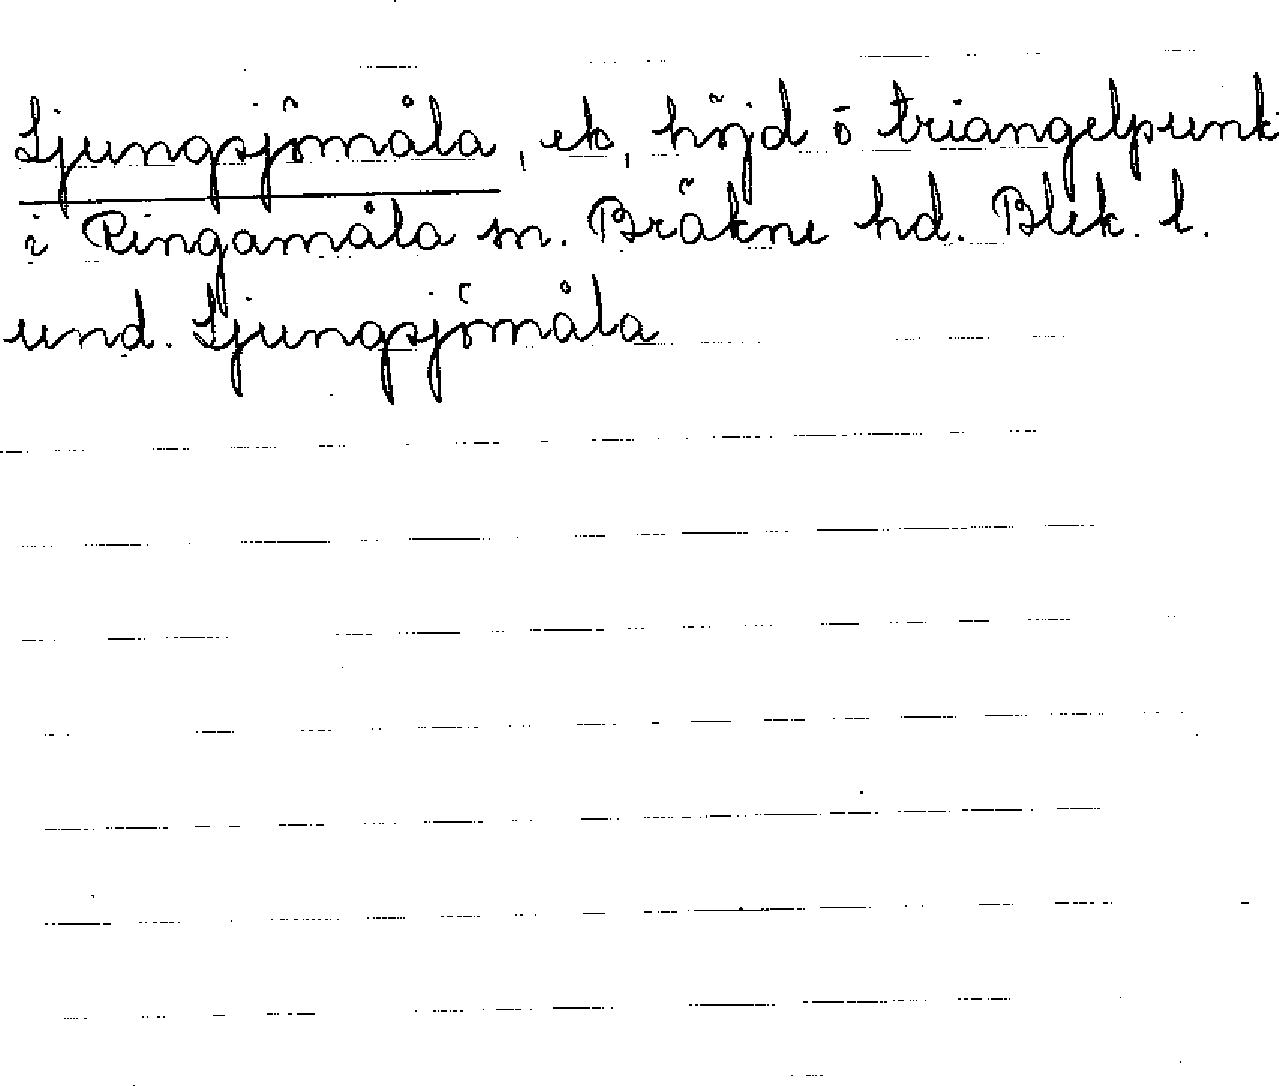 Ljungsjömåla, ek, höjd o triangelpunk
i Ringamåla sn. Bräkne hd. Blek. l.
und. Ljungsjömåla